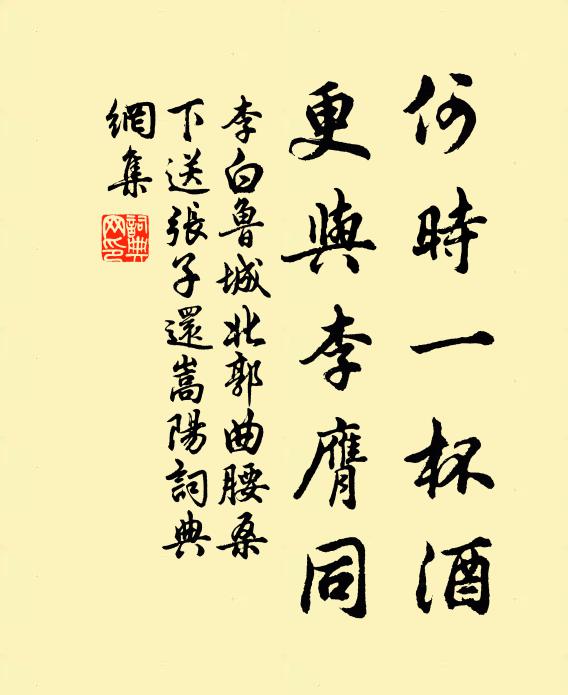 何時一杯酒
更與李膺同
李白魯城北郭曲腰桑
下送張子還嵩陽詞典
網集
詞典
网印